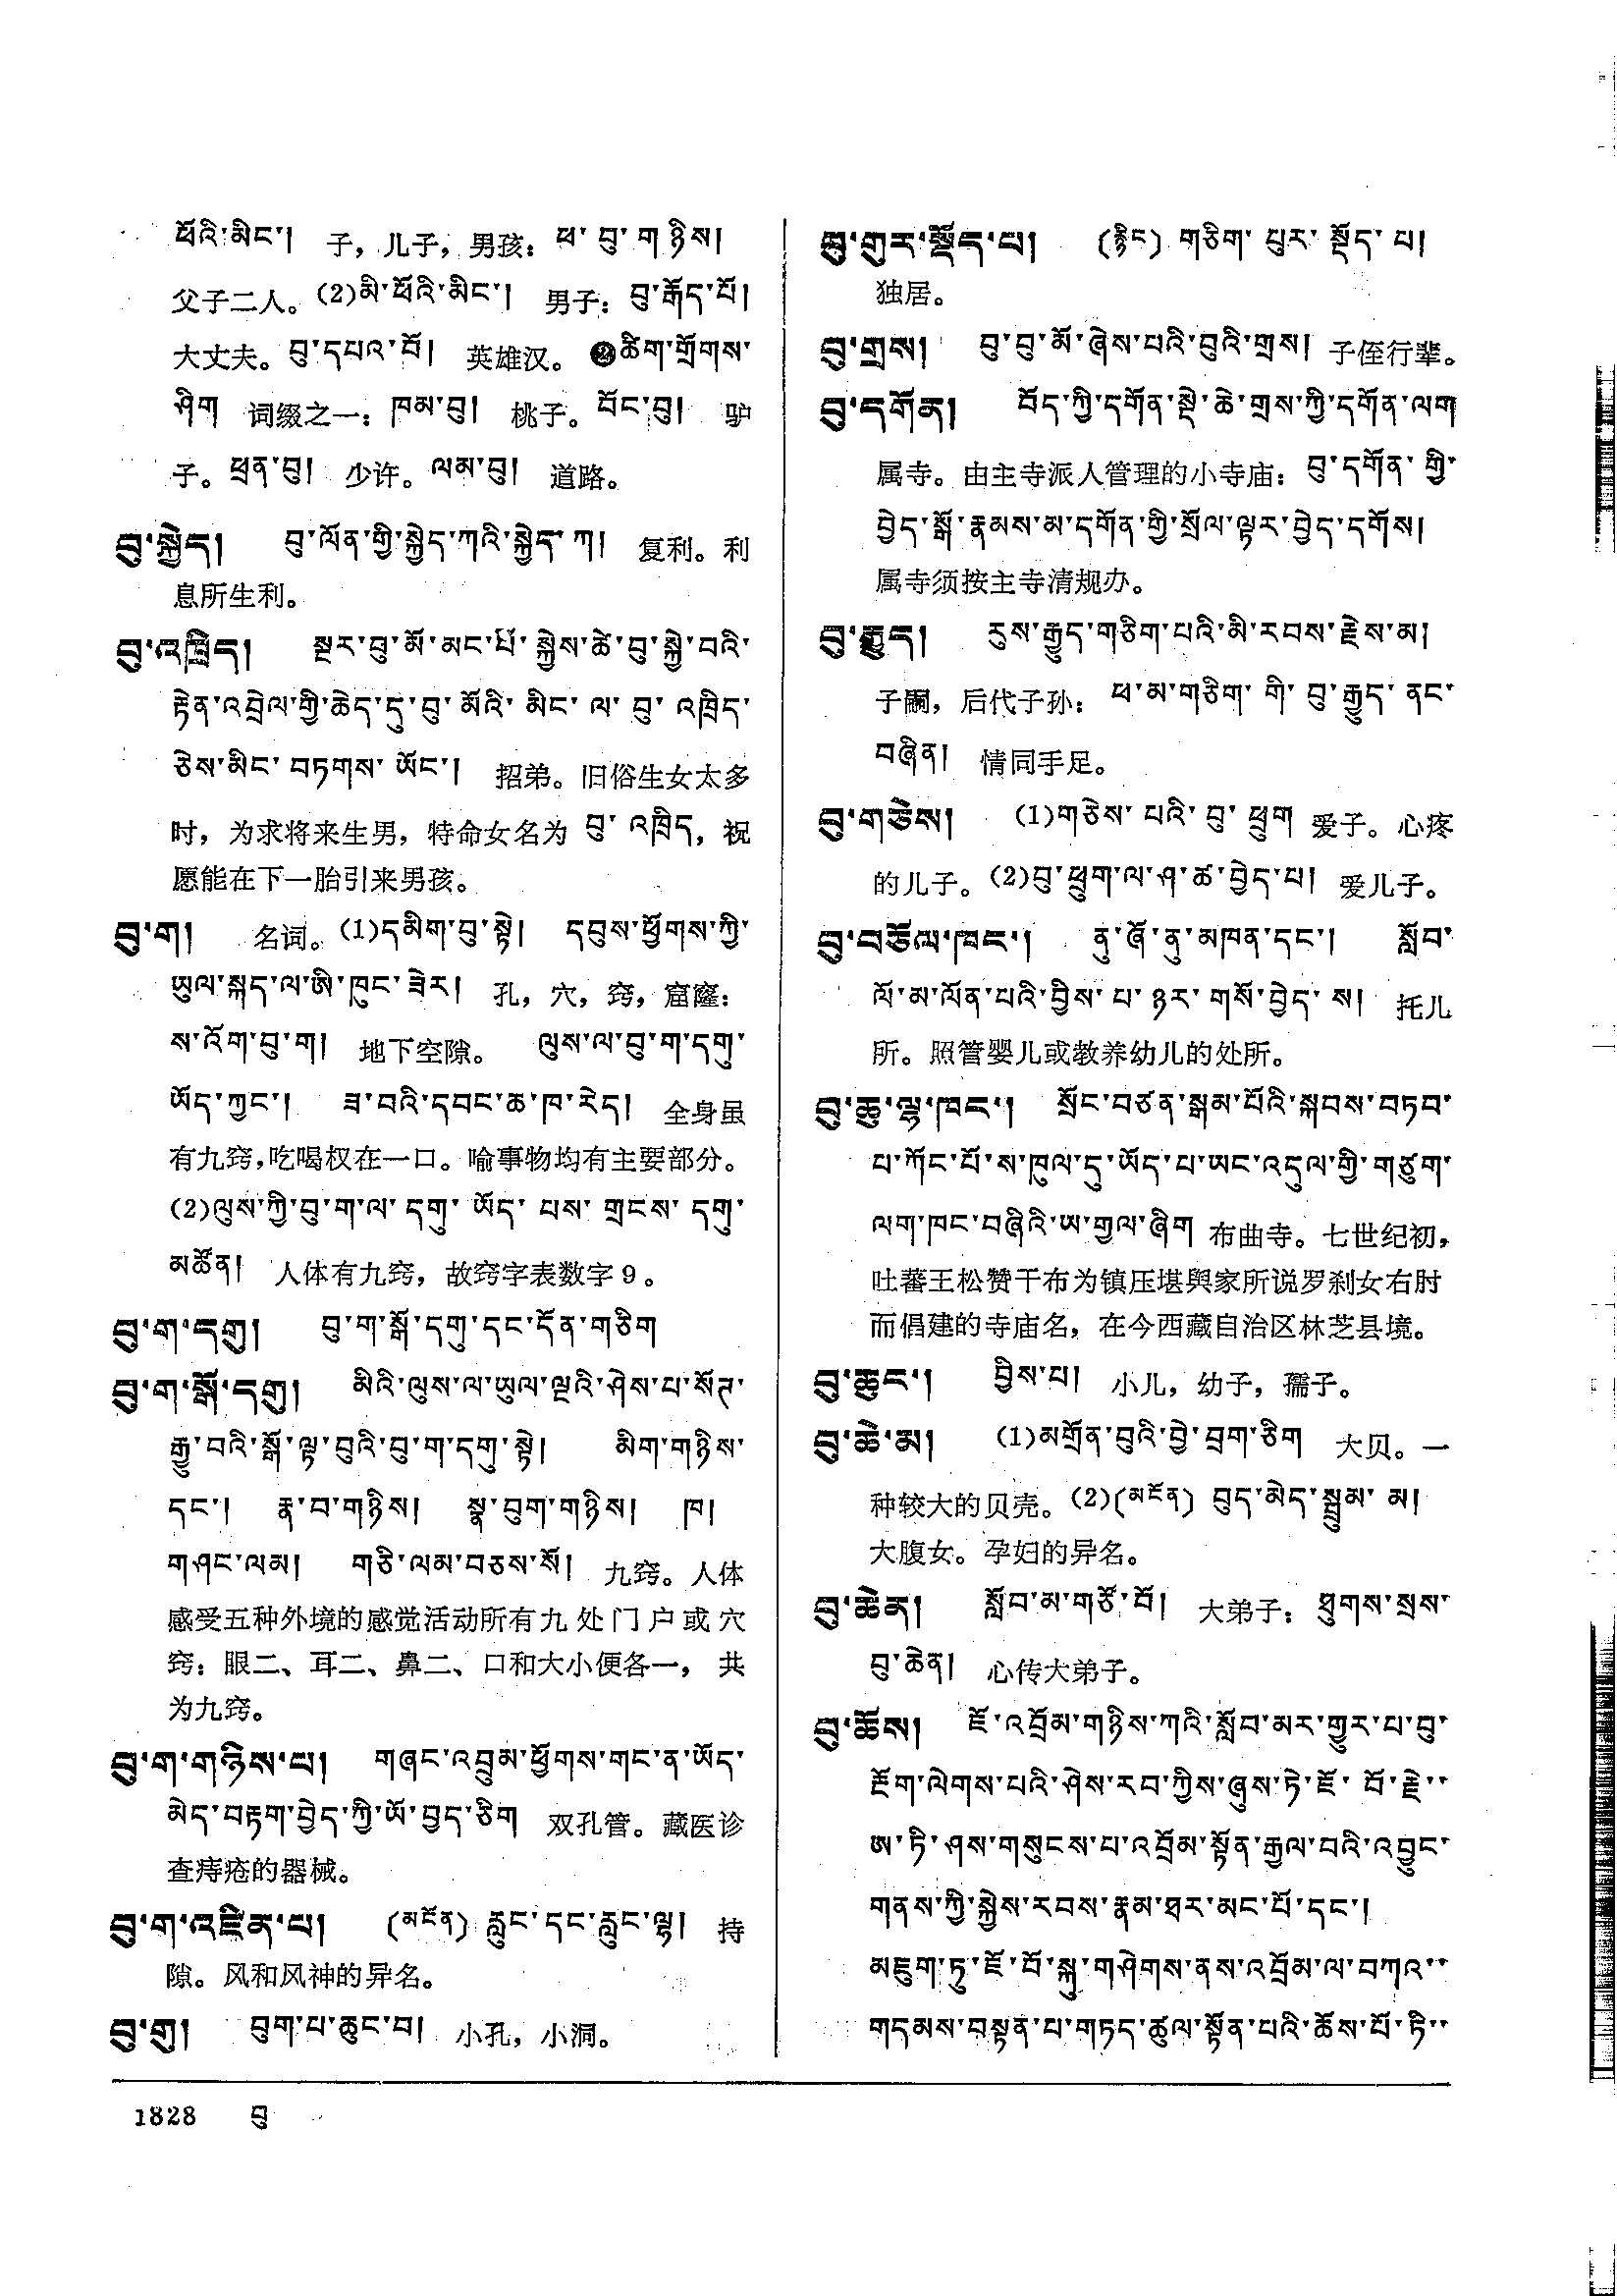 ཕོའི་མིང་། 子，儿子，男孩：ཕ་བུ་གཉིས།
父子二人。(2)མི་ཕོའི་མིང་། 男子：བུ་རྒོད་པོ།
大丈夫。བུ་དཔའ་བོ། 英雄汉。❷ཚིག་གྲོགས་
ཤིག 词缀之一：ཁམ་བུ། 桃子。བོང་བུ། 驴
子。ཕྲན་བུ། 少许。ལམ་བུ། 道路。
བུ་སྐྱེད། བུ་ལོན་གྱི་སྐྱེད་ཀའི་སྐྱེད་ཀ། 复利。利
息所生利。
བུ་འཁྲིད། སྔར་བུ་མོ་མང་པོ་སྐྱེས་ཚེ་བུ་སྐྱེ་བའི་
རྟེན་འབྲེལ་གྱི་ཆེད་དུ་བུ་མོའི་མིང་ལ་བུ་འཁྲིད་
ཅེས་མིང་བཏགས་ཡོང་། 招弟。旧俗生女太多
时，为求将来生男，特命女名为 བུ་འཁྲིད，祝
愿能在下一胎引来男孩。
བུ་ག། 名词。(1)དམིག་བུ་སྟེ། དབུས་ཕྱོགས་ཀྱི་
ཡུལ་སྐད་ལ་ཨི་ཁུང་ཟེར། 孔，穴，窍，窟窿：
ས་འོག་བུ་ག། 地下空隙。 ལུས་ལ་བུ་ག་དགུ་
ཡོད་ཀྱང་། ཟ་བའི་དབང་ཆ་ཁ་རེད། 全身虽
有九窍，吃喝权在一口。喻事物均有主要部分。
(2)ལུས་ཀྱི་བུ་ག་ལ་དགུ་ཡོད་པས་གྲངས་དགུ་
མཚོན། 人体有九窍，故窍字表数字9。
བུ་ག་དགུ། བུ་ག་སྒོ་དགུ་དང་དོན་གཅིག
བུ་ག་སྒོ་དགུ། མིའི་ལུས་ལ་ཡུལ་ལྔའི་ཤེས་པ་སོཊ་
རྒྱུ་བའི་སྒོ་ལྟ་བུའི་བུ་ག་དགུ་སྟེ། མིག་གཉིས་
དང་། རྣ་བ་གཉིས། སྣ་བུག་གཉིས། ཁ།
གཤང་ལམ། གཅི་ལམ་བཅས་སོ། 九窍。人体
感受五种外境的感觉活动所有九处门户或穴
窍：眼二、耳二、鼻二、口和大小便各一，共
为九窍。
བུ་ག་གཉིས་པ། གཞང་འབྲུམ་ཕྱོགས་གང་ན་ཡོད་
མེད་བརྟག་བྱེད་ཀྱི་ཡོ་བྱད་ཅིག 双孔管。藏医诊
查痔疮的器械。
བུ་ག་འཛིན་པ། (མངོན) རླུང་དང་རླུང་ལྷ། 持
隙。风和风神的异名。
བུ་གུ། བུག་པ་ཆུང་བ། 小孔，小洞。
བུ་གུར་སྡོད་པ། (རྙིང) གཅིག་པུར་སྡོད་པ།
独居。
བུ་གྲས། བུ་བུ་མོ་ཞེས་པའི་བུའི་གྲས། 子侄行辈。
བུ་དགོན། བོད་ཀྱི་དགོན་སྡེ་ཆེ་གྲས་ཀྱི་དགོན་ལག
属寺。由主寺派人管理的小寺庙：བུ་དགོན་གྱི་
བྱེད་སྒོ་རྣམས་མ་དགོན་གྱི་སྲོལ་ལྟར་བྱེད་དགོས།
属寺须按主寺清规办。
བུ་རྒྱུད། རུས་རྒྱུད་གཅིག་པའི་མི་རབས་རྗེས་མ།
子嗣，后代子孙：ཕ་མ་གཅིག་གི་བུ་རྒྱུད་ནང་
བཞིན། 情同手足。
བུ་གཅེས། (1)གཅེས་པའི་བུ་ཕྲུག 爱子。心疼
的儿子。(2)བུ་ཕྲུག་ལ་ཤ་ཚ་བྱེད་པ། 爱儿子。
བུ་བཅོལ་ཁང་། ནུ་ཞོ་ནུ་མཁན་དང་། སློབ་
ལོ་མ་ལོན་པའི་བྱིས་པ་ཉར་གསོ་བྱེད་ས། 托儿
所。照管婴儿或教养幼儿的处所。
བུ་ཆུ་ལྷ་ཁང་། སྲོང་བཙན་སྒམ་པོའི་སྐབས་བཏབ་
པ་ཀོང་པོ་ས་ཁུལ་དུ་ཡོད་པ་ཡང་འདུལ་གྱི་གཙུག་
ལག་ཁང་བཞིའི་ཨ་གྱལ་ཞིག 布曲寺。七世纪初，
吐蕃王松赞干布为镇压堪舆家所说罗刹女右肘
而倡建的寺庙名，在今西藏自治区林芝县境。
བུ་ཆུང་། བྱིས་པ། 小儿，幼子，孺子。
བུ་ཆེ་མ། (1)མགྲོན་བུའི་བྱེ་བྲག་ཅིག 大贝。一
种较大的贝壳。(2)(མངོན) བུད་མེད་སྦྲུམ་མ།
大腹女。孕妇的异名。
བུ་ཆེན། སློབ་མ་གཙོ་བོ། 大弟子：ཐུགས་སྲས་
བུ་ཆེན། 心传大弟子。
བུ་ཆོས། ཇོ་འབྲོམ་གཉིས་ཀའི་སློབ་མར་གྱུར་པ་བུ་
རྔོག་ལེགས་པའི་ཤེས་རབ་ཀྱིས་ཞུས་ཏེ་ཇོ་བོ་རྗེ་
ཨ་ཏི་ཤས་གསུངས་པ་འབྲོམ་སྟོན་རྒྱལ་བའི་འབྱུང་
གནས་ཀྱི་སྐྱེས་རབས་རྣམ་ཐར་མང་པོ་དང་།
མཇུག་ཏུ་ཇོ་བོ་སྐུ་གཤེགས་ནས་འབྲོམ་ལ་བཀའ་
གདམས་བསྟན་པ་གཏད་ཚུལ་སྟོན་པའི་ཆོས་པོ་ཏི་
1828 བུ